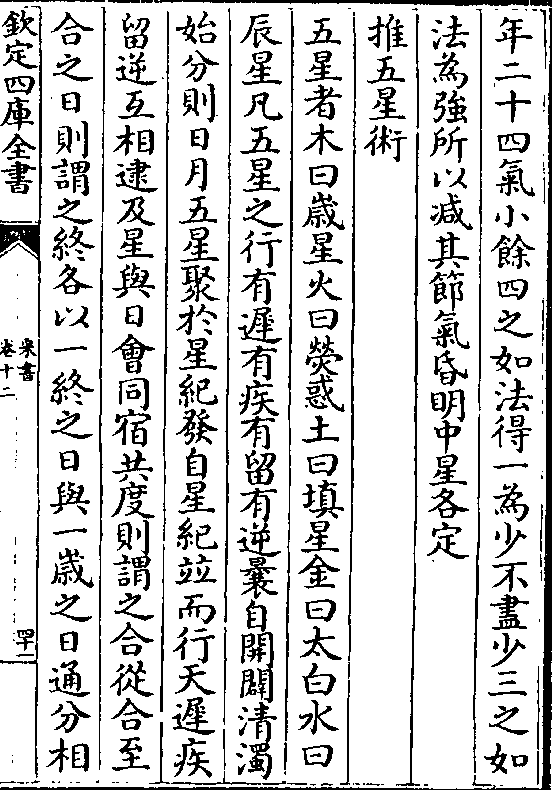 年二十四氣小餘四之如法得一為少不盡少三之如
法為強所以減其節氣昏明中星各定
推五星術
五星者木曰歲星火曰熒惑土曰填星金曰太白水曰
辰星凡五星之行有遲有疾有留有逆曩自開闢清濁
始分則日月五星聚於星紀發自星紀並而行天遲疾
留逆互相逮及星與日會同宿共度則謂之合從合至
合之日則謂之終各以一終之日與一歲之日通分相
欽定四庫全書
宋書
卷十二
四十一